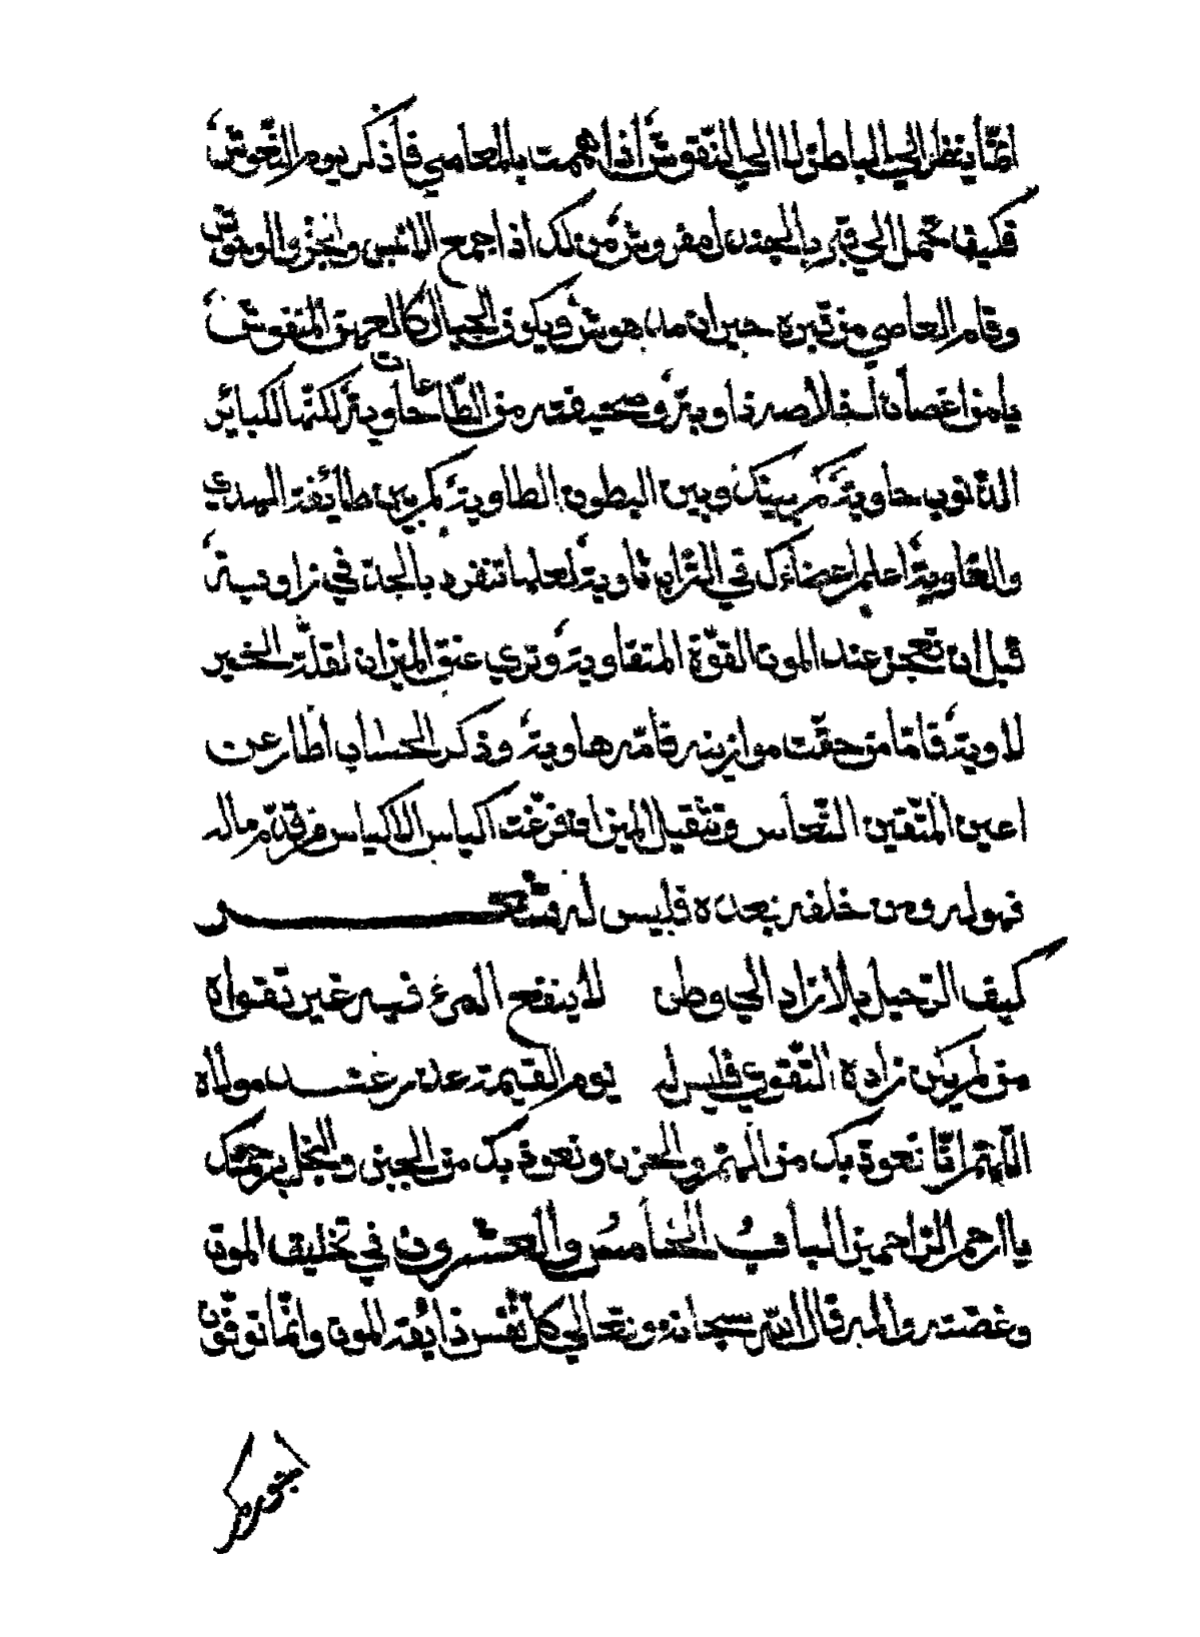 انما ينظر الى الباطن لا الى النقوش اذا هممت بالمعاصي فاذكر يوم النعوش
فكيف تحمل الى قبر بالجندل مفروش من لك اذا جمع الانس والجن والوحوش
وقام العاصي من قبره حيران مدهوش ويكون الجبال كالعهن المنفوش
يا من اغصان اخلاصه ذاوية وصحيفته من الطاعات خاوية لكنها لكبائر
الذنوب حاوية كم بينك وبين البطون الطاوية كم بين طائفة الهدى
والغاوية اعلم اعضاءك في التراب ثاوية لعلها تنفرد بالجد في زاوية
قبل ان تعجز عند الموت القوة المتقاوية وترى عنق الميزان لقلة الخير
لاوية فاما من خفت موازينه فامه هاوية وذكر الحساب اطار عن
اعين المتقين النعاس وتثقيل الميزان فرغت اكياس الاكياس من قدم ماله
فهو له ومن خلفه بعده فليس له شعر
كيف الرحيل بلا زاد الى وطن لا ينفع المرء فيه غير تقواه
من لم يكن زاده التقوى فليس له يوم القيمة عذر عند مولاه
اللهم انا نعوذ بك من الهم والحزن ونعوذ بك من الجبن والبخل برحمتك
يا ارحم الراحمين الباب الخامس والعشرون في تخليف الموت
وغصته والمه قال الله سبحانه وتعالى كل نفس ذائقة الموت وانما توفون
اجوركم